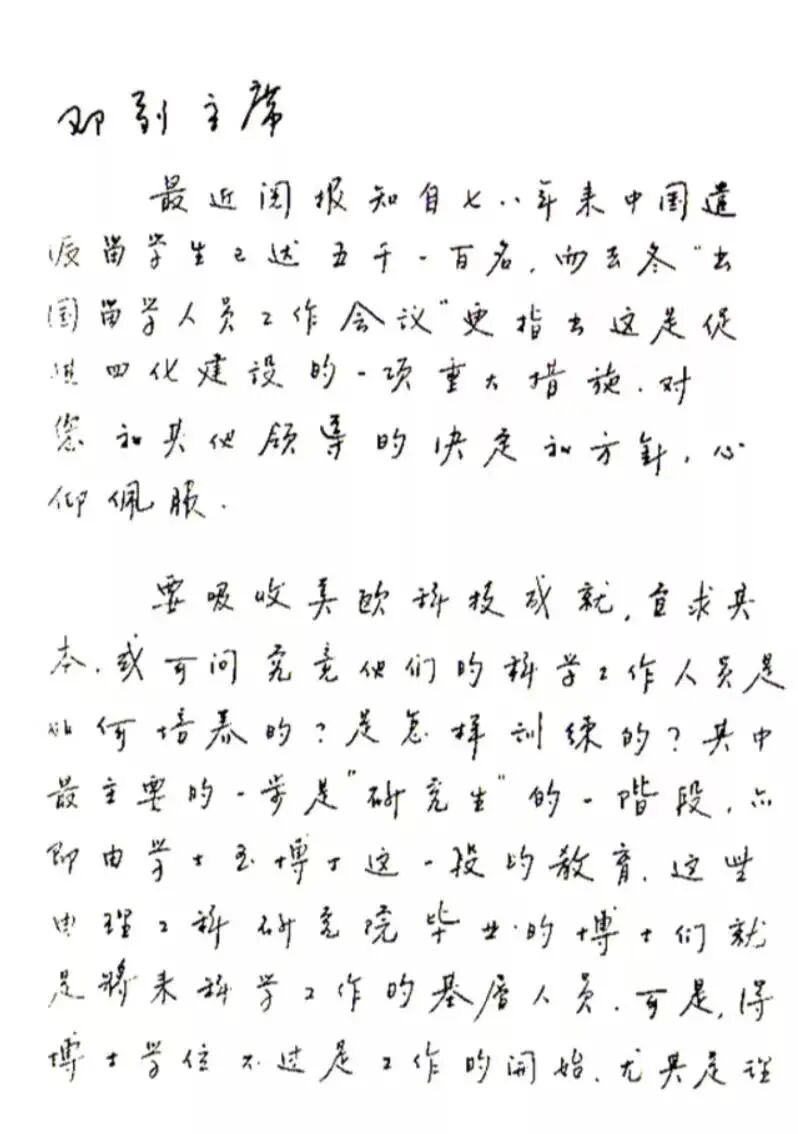 邓副主席
最近阅报知自七八年来中国遣
派留学生已达五千一百名，而去冬“出
国留学人员工作会议”更指出这是促
进四化建设的一项重大措施．对
您和其他领导的决定和方针，心
仰佩服．
要吸收美欧科技成就，宜求其
本．或可问究竟他们的科学工作人员是
如何培养的？是怎样训练的？其中
最主要的一步是“研究生”的一阶段，亦
即由学士至博士这一段的教育．这些
由理工科研究院毕业的博士们就
是將来科学工作的基层人员．可是，得
博士学位不过是工作的開始．尤其是理